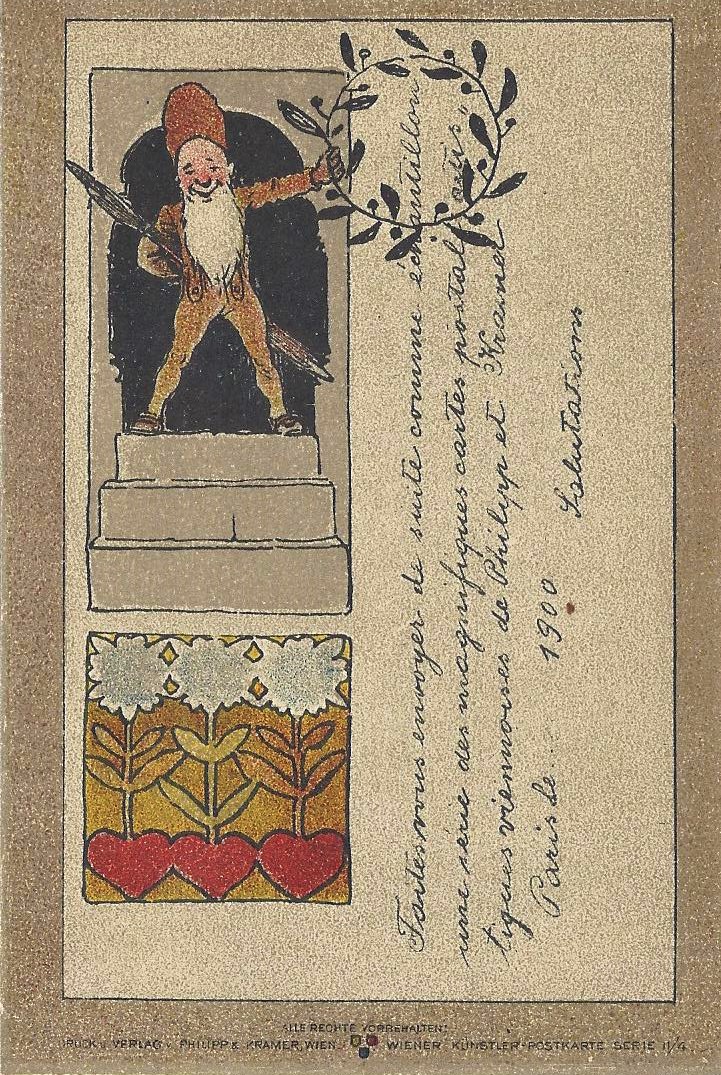 Faites vous envoyer de suite comme échantillon
une série des magnifiques cartes postal artis,
tiques viennoises de Philipp et Kramer
Paris le... 1900 Salutations
ALLE RECHTE VORBEHALTEN!
DRUCK u. VERLAG v. PHILIPP & KRAMER, WIEN. WIENER KÜNSTLER-POSTKARTE SERIE II/4